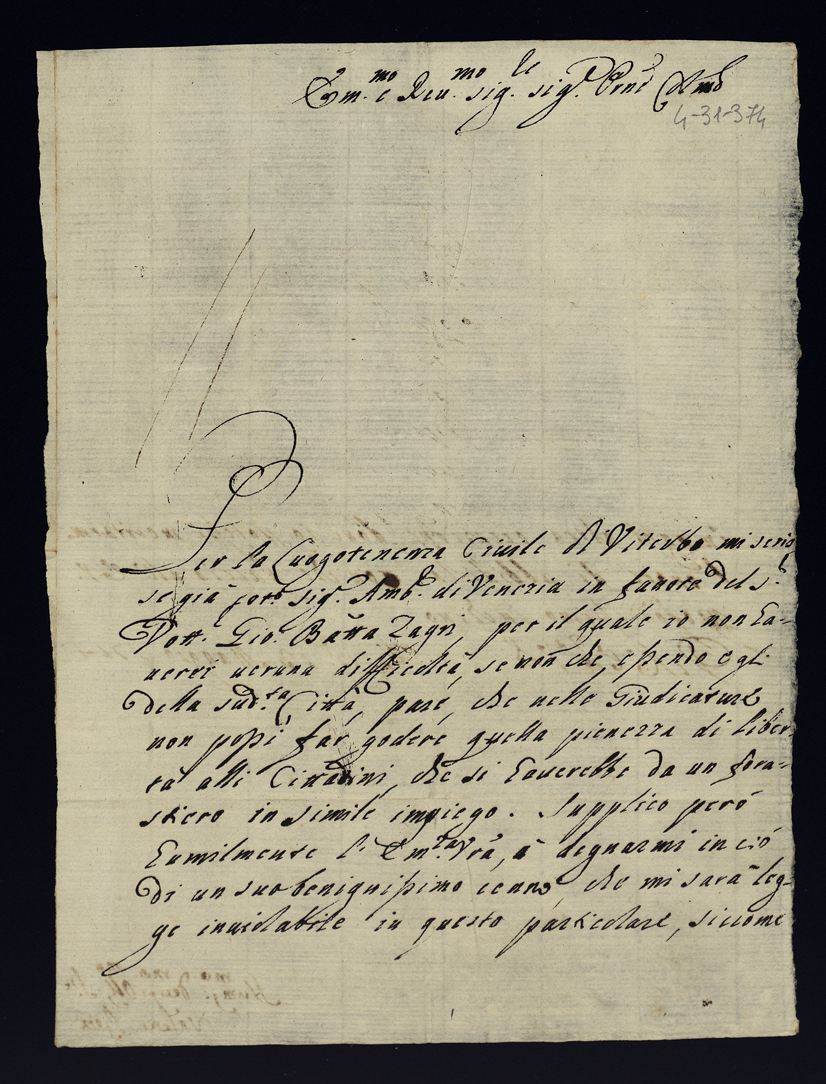 Em.mo e Reu.mo sig.re sig.r Prne Colmo
4-31-374
Per la Luogotenenza Ciuile di Viterbo mi scris
se già cot.o sig.r Amb.re di Venezia in fauore del s.r
Dott. Gio: Batta Zagri, per il quale io non ha-
uerei ueruna difficoltà, se non che essendo egli
della sud.ta Città, pare, che nelle Giudicature
non possi far godere quella pienezza di liber-
tà alli Cittadini, che si hauerebbe da un fora-
stiero in simile impiego. Supplico però
humilmente l' Em.za Vra, à degnarmi in ciò
di un suo benignissimo cenno, che mi sarà leg-
ge inuiolabile in questo particolare, siccome